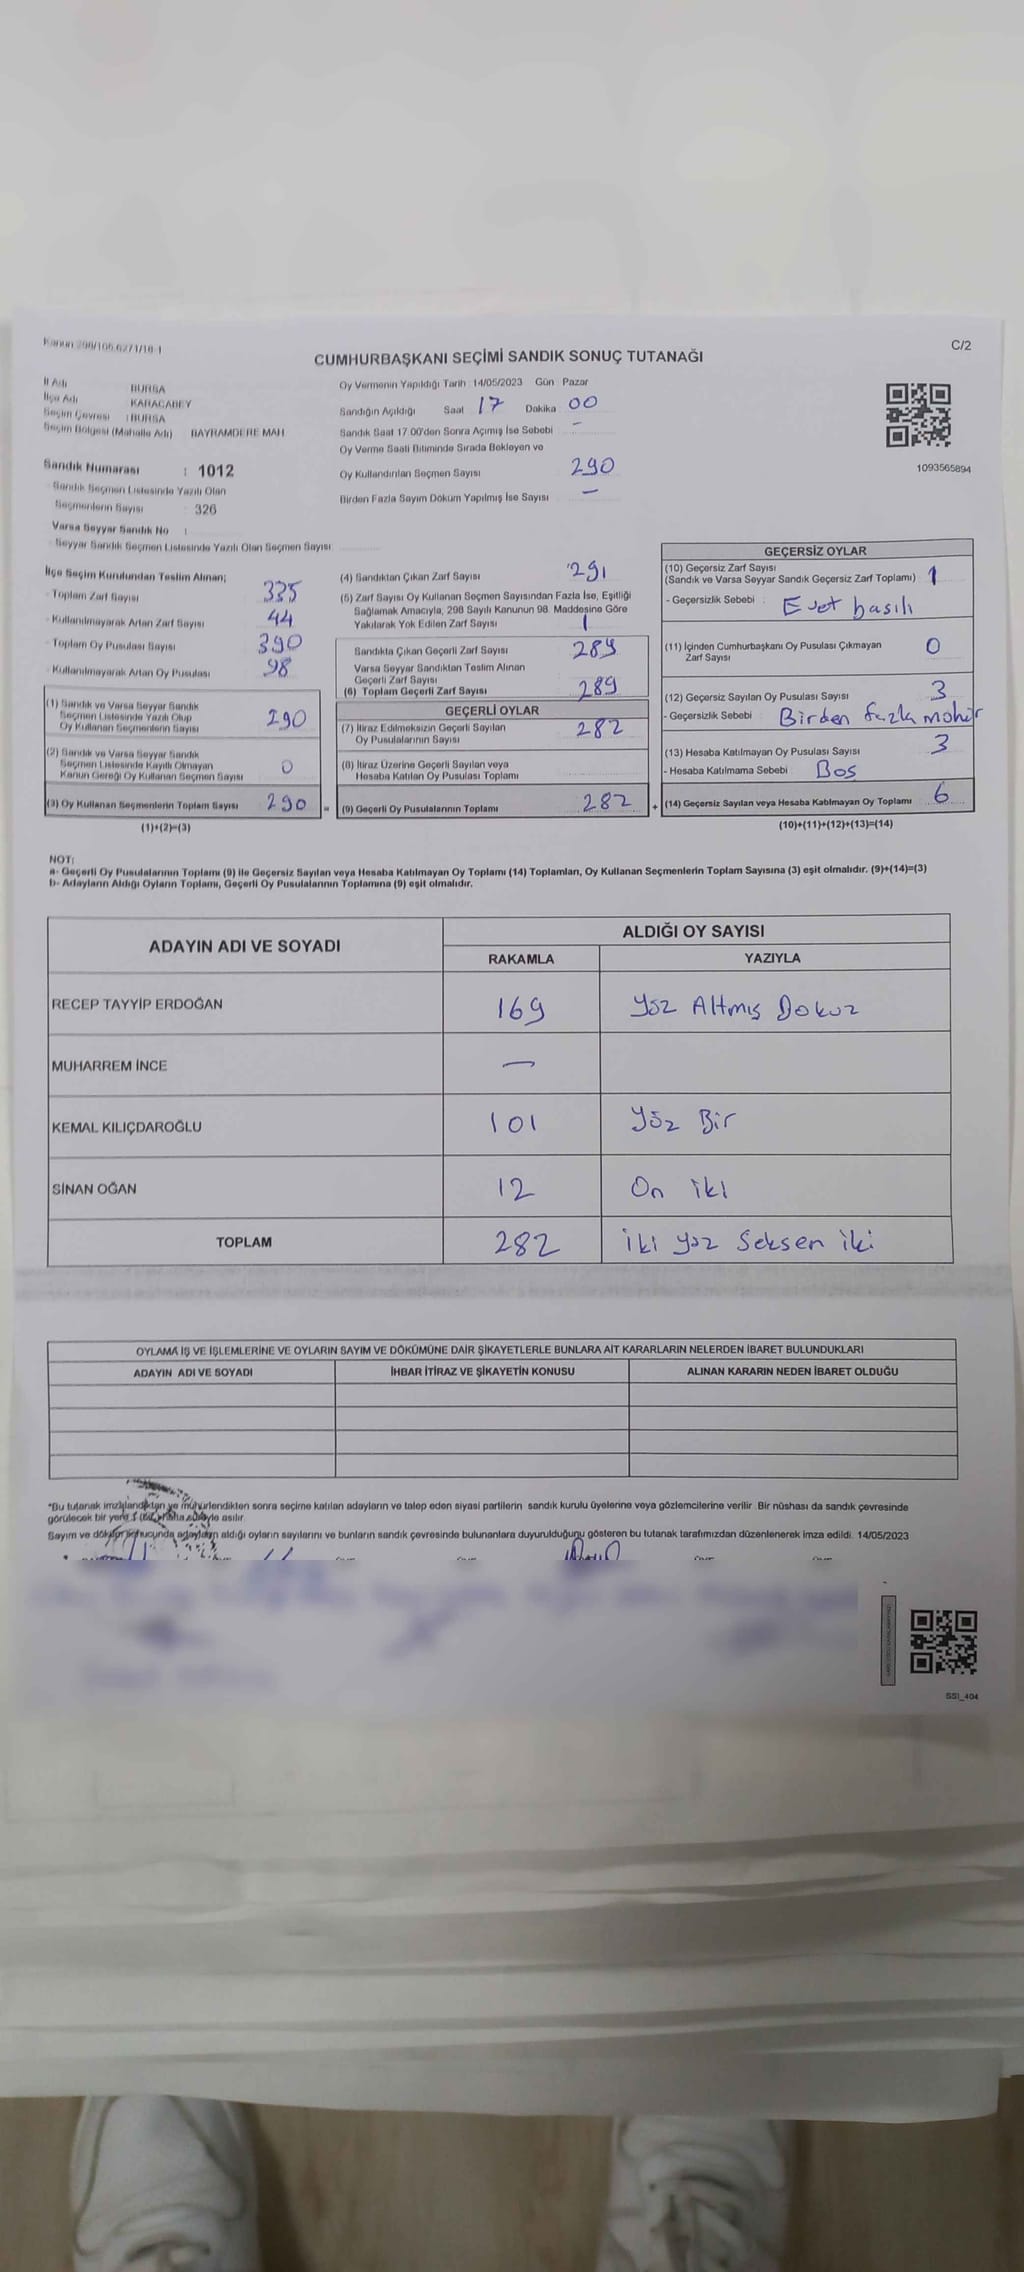 Kanun 298/106,6271/18-1
C/2
CUMHURBAŞKANI SEÇİMİ SANDIK SONUÇ TUTANAĞI
İl Adı BURSA
İlçe Adı KARACABEY
Seçim Çevresi : BURSA
Seçim Bölgesi (Mahalle Adı) BAYRAMDERE MAH
Sandık Numarası : 1012
- Sandık Seçmen Listesinde Yazılı Olan
Seçmenlerin Sayısı 326
Varsa Seyyar Sandık No :
- Seyyar Sandık Seçmen Listesinde Yazılı Olan Seçmen Sayısı
Oy Vermenin Yapıldığı Tarih 14/05/2023 Gün Pazar
Sandığın Açıldığı Saat 17 Dakika 00
Sandık Saat 17.00'den Sonra Açımış İse Sebebi -
Oy Verme Saati Bitiminde Sırada Bekleyen ve
Oy Kullandırılan Seçmen Sayısı 290
Birden Fazla Sayım Döküm Yapılmış İse Sayısı -
1093565894
İlçe Seçim Kurulundan Teslim Alınan;
- Toplam Zarf Sayısı 335
- Kullanılmayarak Artan Zarf Sayısı 44
- Toplam Oy Pusulası Sayısı 390
- Kullanılmayarak Artan Oy Pusulası 98
(1) Sandık ve Varsa Seyyar Sandık
Seçmen Listesinde Yazılı Olup
Oy Kullanan Seçmenlerin Sayısı 290
(2) Sandık ve Varsa Seyyar Sandık
Seçmen Listesinde Kayıtlı Olmayan
Kanun Gereği Oy Kullanan Seçmen Sayısı 0
(3) Oy Kullanan Seçmenlerin Toplam Sayısı 290 =
(1)+(2)=(3)
(4) Sandıktan Çıkan Zarf Sayısı 291
(5) Zarf Sayısı Oy Kullanan Seçmen Sayısından Fazla İse, Eşitliği
Sağlamak Amacıyla, 298 Sayılı Kanunun 98. Maddesine Göre
Yakılarak Yok Edilen Zarf Sayısı 1
Sandıkta Çıkan Geçerli Zarf Sayısı 289
Varsa Seyyar Sandıktan Teslim Alınan
Geçerli Zarf Sayısı
(6) Toplam Geçerli Zarf Sayısı 289
GEÇERLİ OYLAR
(7) İtiraz Edilmeksizin Geçerli Sayılan
Oy Pusulalarının Sayısı 282
(8) İtiraz Üzerine Geçerli Sayılan veya
Hesaba Katılan Oy Pusulası Toplamı
(9) Geçerli Oy Pusulalarının Toplamı 282 +
GEÇERSİZ OYLAR
(10) Geçersiz Zarf Sayısı
(Sandık ve Varsa Seyyar Sandık Geçersiz Zarf Toplamı) 1
- Geçersizlik Sebebi : Evet basılı
(11) İçinden Cumhurbaşkanı Oy Pusulası Çıkmayan
Zarf Sayısı 0
(12) Geçersiz Sayılan Oy Pusulası Sayısı 3
- Geçersizlik Sebebi : Birden fazla mohür
(13) Hesaba Katılmayan Oy Pusulası Sayısı 3
- Hesaba Katılmama Sebebi Bos
(14) Geçersiz Sayılan veya Hesaba Katılmayan Oy Toplamı 6
(10)+(11)+(12)+(13)=(14)
NOT:
a- Geçerli Oy Pusulalarının Toplamı (9) ile Geçersiz Sayılan veya Hesaba Katılmayan Oy Toplamı (14) Toplamları, Oy Kullanan Seçmenlerin Toplam Sayısına (3) eşit olmalıdır. (9)+(14)=(3)
b- Adayların Aldığı Oyların Toplamı, Geçerli Oy Pusulalarının Toplamına (9) eşit olmalıdır.
ADAYIN ADI VE SOYADI
ALDIĞI OY SAYISI
RAKAMLA YAZIYLA
RECEP TAYYİP ERDOĞAN 169 Yüz Altmış Dokuz
MUHARREM İNCE —
KEMAL KILIÇDAROĞLU 101 Yüz Bir
SİNAN OĞAN 12 On iki
TOPLAM 282 İki yüz Seksen iki
OYLAMA İŞ VE İŞLEMLERİNE VE OYLARIN SAYIM VE DÖKÜMÜNE DAİR ŞİKAYETLERLE BUNLARA AİT KARARLARIN NELERDEN İBARET BULUNDUKLARI
ADAYIN ADI VE SOYADI İHBAR İTİRAZ VE ŞİKAYETİN KONUSU ALINAN KARARIN NEDEN İBARET OLDUĞU
*Bu tutanak imzalandıktan ve mühürlendikten sonra seçime katılan adayların ve talep eden siyasi partilerin sandık kurulu üyelerine veya gözlemcilerine verilir. Bir nüshası da sandık çevresinde
görülecek bir yere 1 (bir) hafta süreyle asılır.
Sayım ve döküm sonucunda adayların aldığı oyların sayılarını ve bunların sandık çevresinde bulunanlara duyurulduğunu gösteren bu tutanak tarafımızdan düzenlenerek imza edildi. 14/05/2023
SSI_404